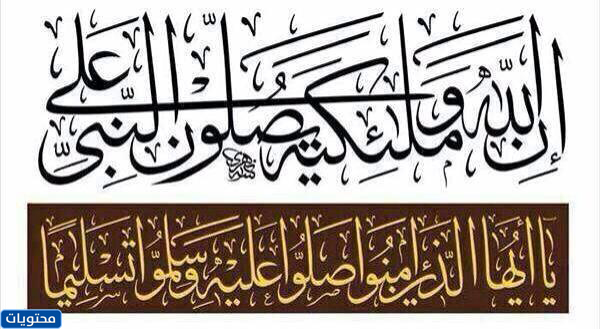 إن الله وملئكته يصلون على النبي
يا أيها الذين امنوا صلوا عليه وسلموا تسليما
محتويات